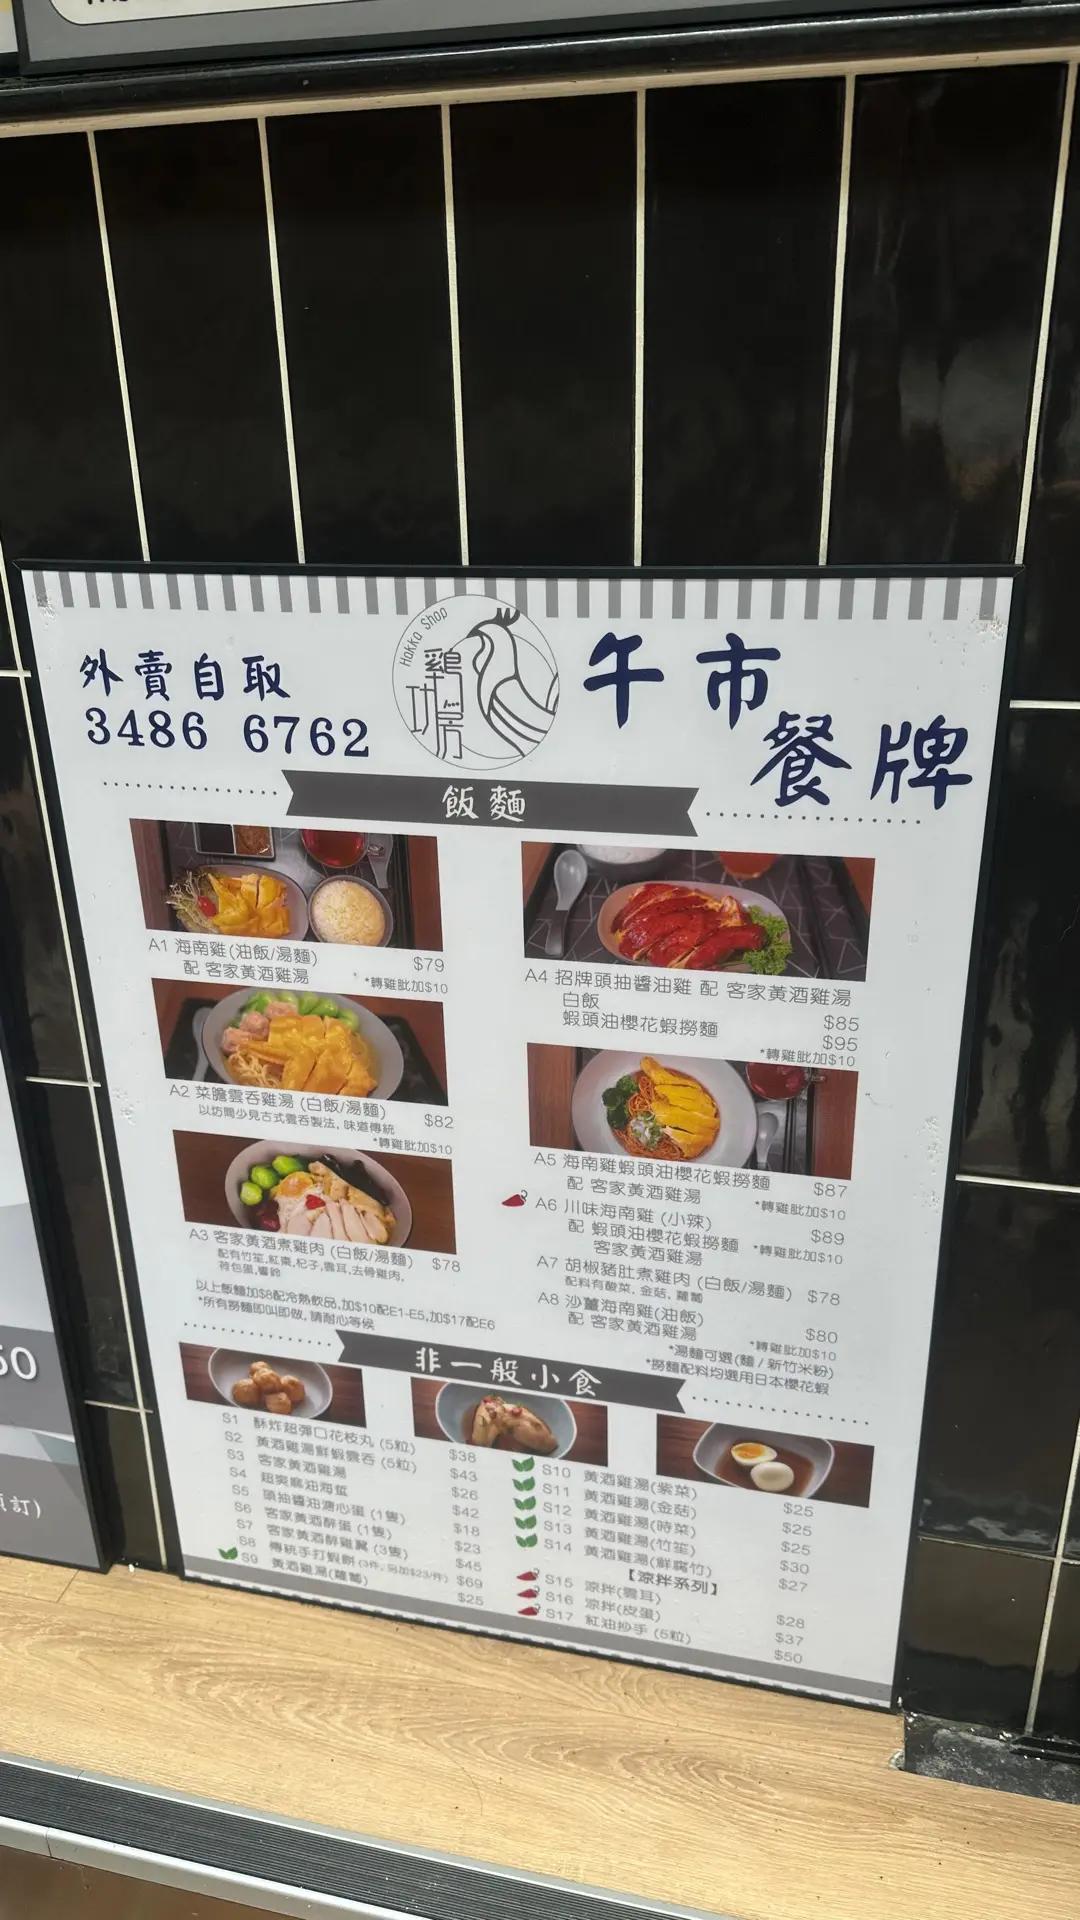 外賣自取
3486 6762
Hakka Shop
雞坊
午市
餐牌
飯麵
A1 海南雞(油飯/湯麵)
配 客家黃酒雞湯
$79
*轉雞肶加$10
A2 菜膽雲吞雞湯 (白飯/湯麵)
以坊間少見古式雲吞製法, 味道傳統
$82
*轉雞肶加$10
A3 客家黃酒煮雞肉 (白飯/湯麵) $78
配有竹笙,紅棗,杞子,雲耳,去骨雞肉,
荷包蛋,響鈴
以上飯麵加$8配冷熱飲品,加$10配E1-E5,加$17配E6
*所有撈麵即叫即做, 請耐心等候
A4 招牌頭抽醬油雞 配 客家黃酒雞湯
白飯 $85
蝦頭油櫻花蝦撈麵 $95
*轉雞肶加$10
A5 海南雞蝦頭油櫻花蝦撈麵 $87
配 客家黃酒雞湯 *轉雞肶加$10
A6 川味海南雞 (小辣) $89
配 蝦頭油櫻花蝦撈麵 *轉雞肶加$10
客家黃酒雞湯
A7 胡椒豬肚煮雞肉 (白飯/湯麵) $78
配料有酸菜, 金菇, 蘿蔔
A8 沙薑海南雞(油飯) $80
配 客家黃酒雞湯 *轉雞肶加$10
*湯麵可選(麵 / 新竹米粉)
*撈麵配料均選用日本櫻花蝦
非一般小食
S1 酥炸超彈口花枝丸 (5粒) $38
S2 黃酒雞湯鮮蝦雲吞 (5粒) $43
S3 客家黃酒雞湯 $26
S4 超爽麻油海蜇 $42
S5 頭抽醬油溏心蛋 (1隻) $18
S6 客家黃酒醉蛋 (1隻) $23
S7 客家黃酒醉雞翼 (3隻) $45
S8 傳統手打蝦餅 (3件, 另加$23/件) $69
S9 黃酒雞湯(蘿蔔) $25
S10 黃酒雞湯(紫菜) $25
S11 黃酒雞湯(金菇) $25
S12 黃酒雞湯(時菜) $25
S13 黃酒雞湯(竹笙) $30
S14 黃酒雞湯(鮮腐竹) $27
【涼拌系列】
S15 涼拌(雲耳) $28
S16 涼拌(皮蛋) $37
S17 紅油抄手 (5粒) $50